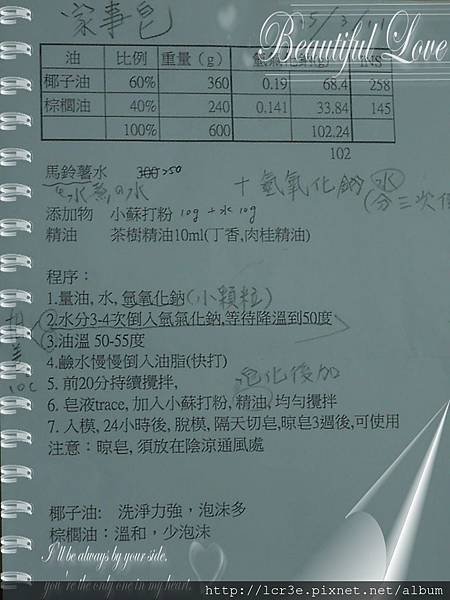 家事皂
Beautiful Love
油 比例 重量(g) INS
椰子油 60% 360 0.19 68.4 258
棕櫚油 40% 240 0.141 33.84 145
100% 600 102.24
102
馬鈴薯水 300>250
+氫氧化鈉 水
(分三次
添加物 小蘇打粉 10g+水10g
精油 茶樹精油10ml(丁香,肉桂精油)
程序：
1.量油, 水, 氫氧化鈉(小顆粒)
2.水分3-4次倒入氫氧化鈉,等待降溫到50度
3.油溫 50-55度
10C
4.鹼水慢慢倒入油脂(快打)
5. 前20分持續攪拌,
皂化後加
6. 皂液trace, 加入小蘇打粉, 精油, 均勻攪拌
7. 入模, 24小時後, 脫模, 隔天切皂,晾皂3週後,可使用
注意：晾皂, 須放在陰涼通風處
椰子油: 洗淨力強，泡沫多
棕櫚油：溫和，少泡沫
I'll be always by your side.
you're the only one in my heart.
http://lcr3e.pixnet.net/album